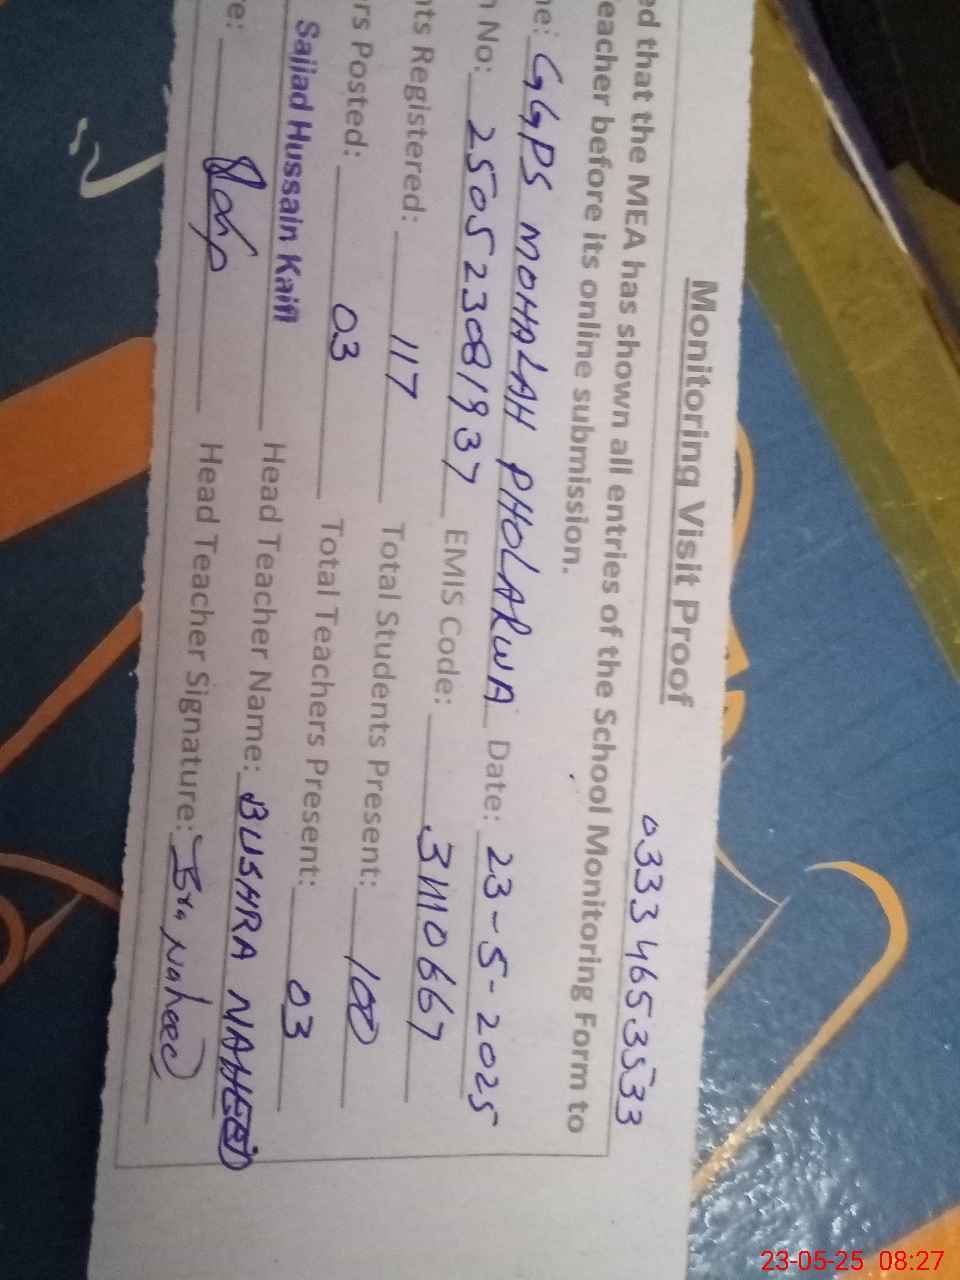 Monitoring Visit Proof
0333 4653533
ed that the MEA has shown all entries of the School Monitoring Form to
eacher before its online submission.
ne: GGPS MOHALAH PHOLARWA Date: 23-5-2025
n No: 2505 2308/937 EMIS Code: 31110667
nts Registered: 117 Total Students Present: 100
rs Posted: 03 Total Teachers Present: 03
Sajjad Hussain Kaifi Head Teacher Name: BUSHRA NAHEED
e: Head Teacher Signature:
23-05-25 08:27